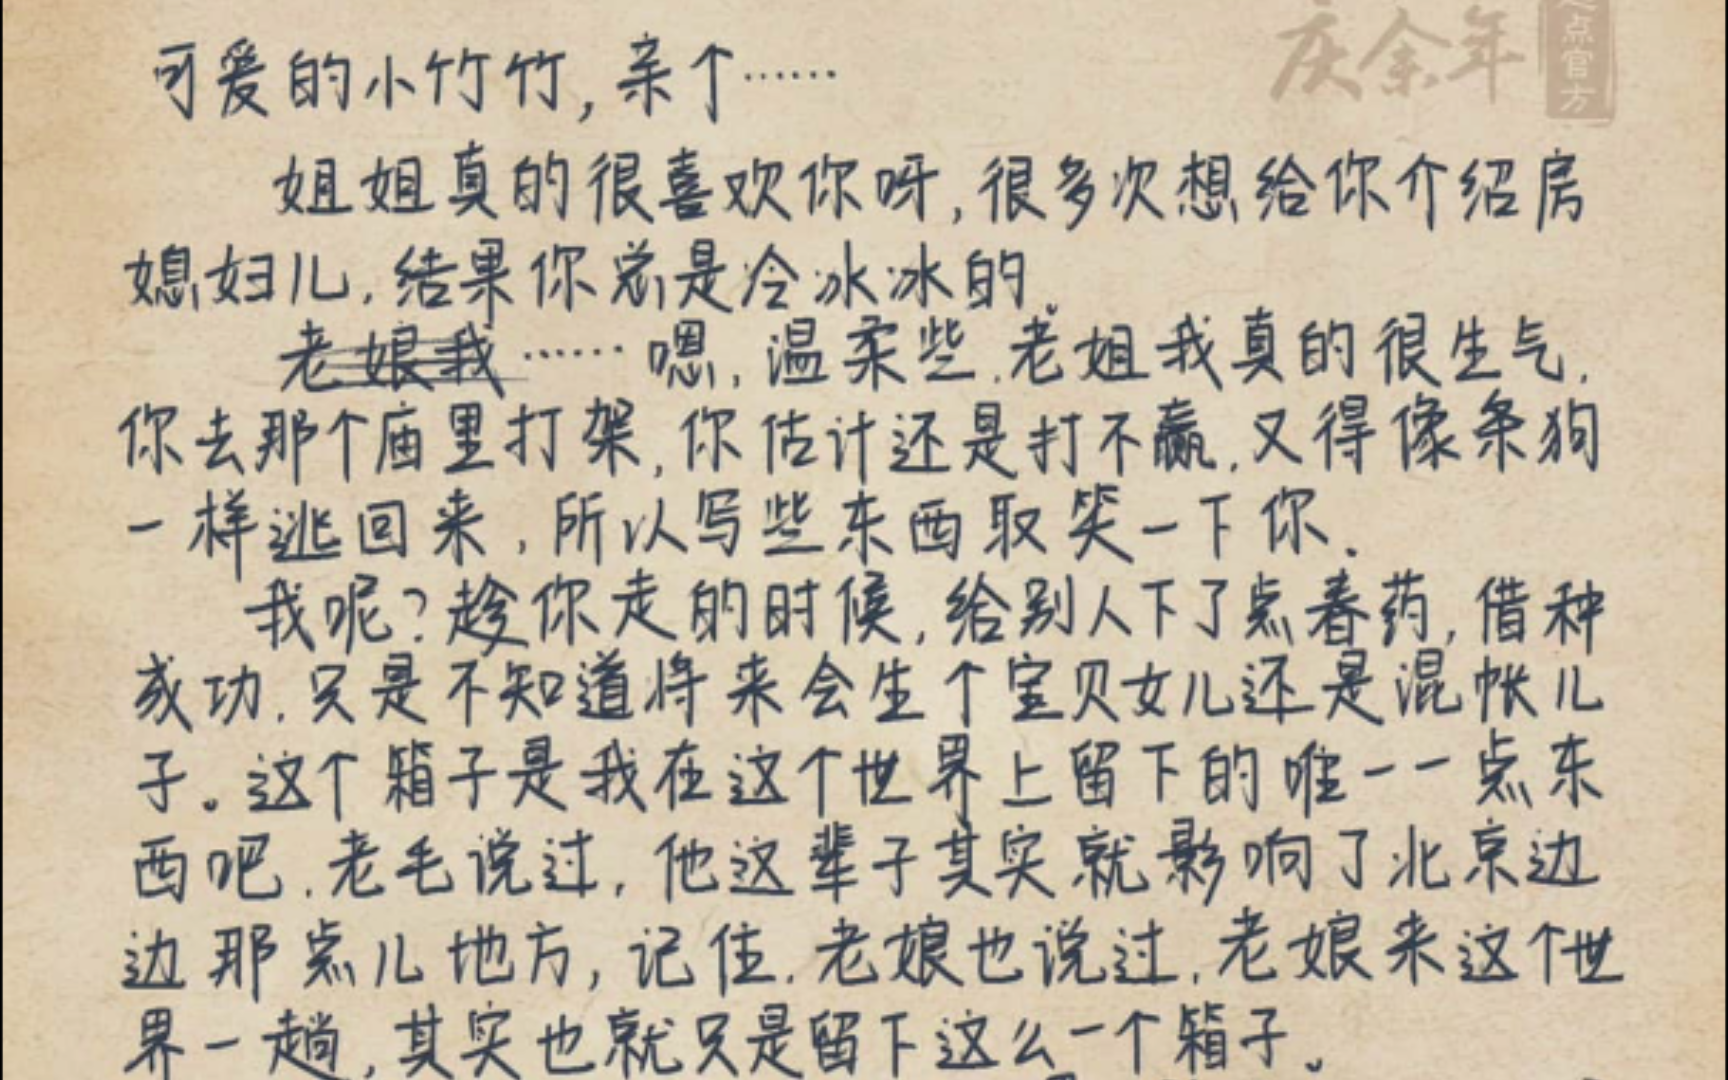 庆余年
起点官方
可爱的小竹竹,亲个……
姐姐真的很喜欢你呀,很多次想给你介绍房
媳妇儿,结果你总是冷冰冰的。
老娘我……嗯,温柔些.老姐我真的很生气.
你去那个庙里打架,你估计还是打不赢,又得像条狗
一样逃回来,所以写些东西取笑一下你.
我呢?趁你走的时候,给别人下了点春药,借种
成功.只是不知道将来会生个宝贝女儿还是混帐儿
子。这个箱子是我在这个世界上留下的唯一一点东
西吧.老毛说过,他这辈子其实就影响了北京边
边那点儿地方,记住.老娘也说过,老娘来这个世
界一趟,其实也就只是留下这么一个箱子。